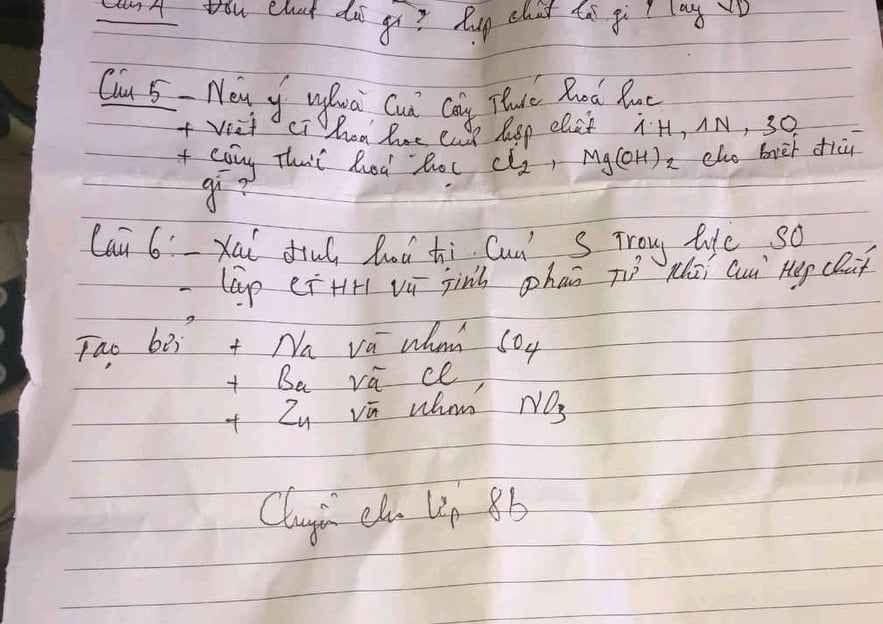 Câu 4 Đơn chất là gì? hợp chất là gì? lấy VD
Câu 5 - Nêu ý nghĩa của công thức hoá học
+ Viết CT hoá học của hợp chất 1H, 1N, 3O
+ công thức hoá học Cl2, Mg(OH)2 cho biết điều
gì?
Câu 6: - Xác định hoá trị của S trong h/c SO
- lập CTHH và tính phân tử khối của Hợp chất
Tạo bởi + Na và nhóm SO4
+ Ba và Cl
+ Zn và nhóm NO3
Chuyển cho lớp 8b